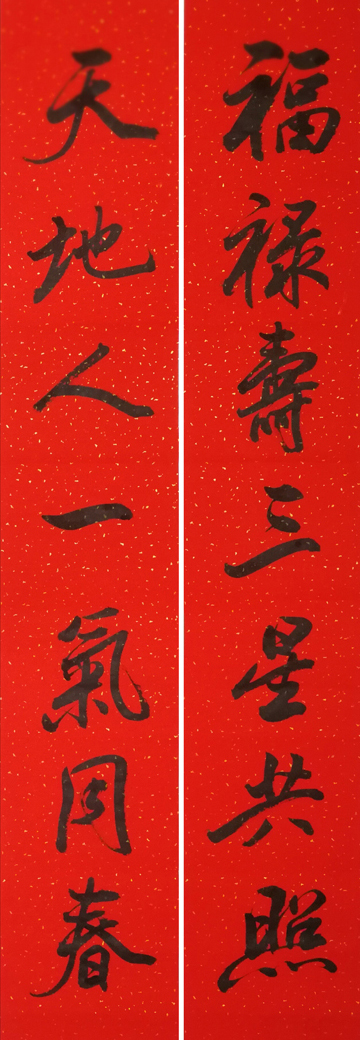 福祿壽三星共照
天地人一氣同春